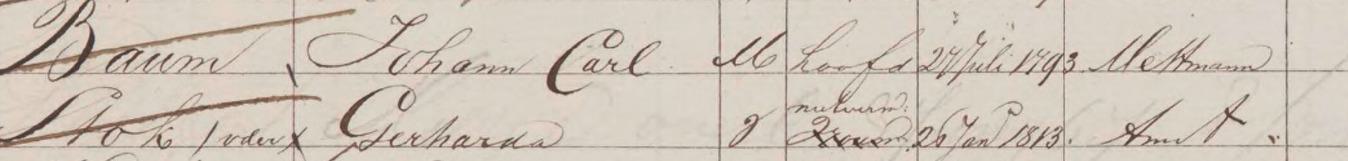 Baum Johann Carl M hoofd 27 Juli 1793 Mettmann
Stok /v der/ Gerharda v 26 Jan 1813. Amst